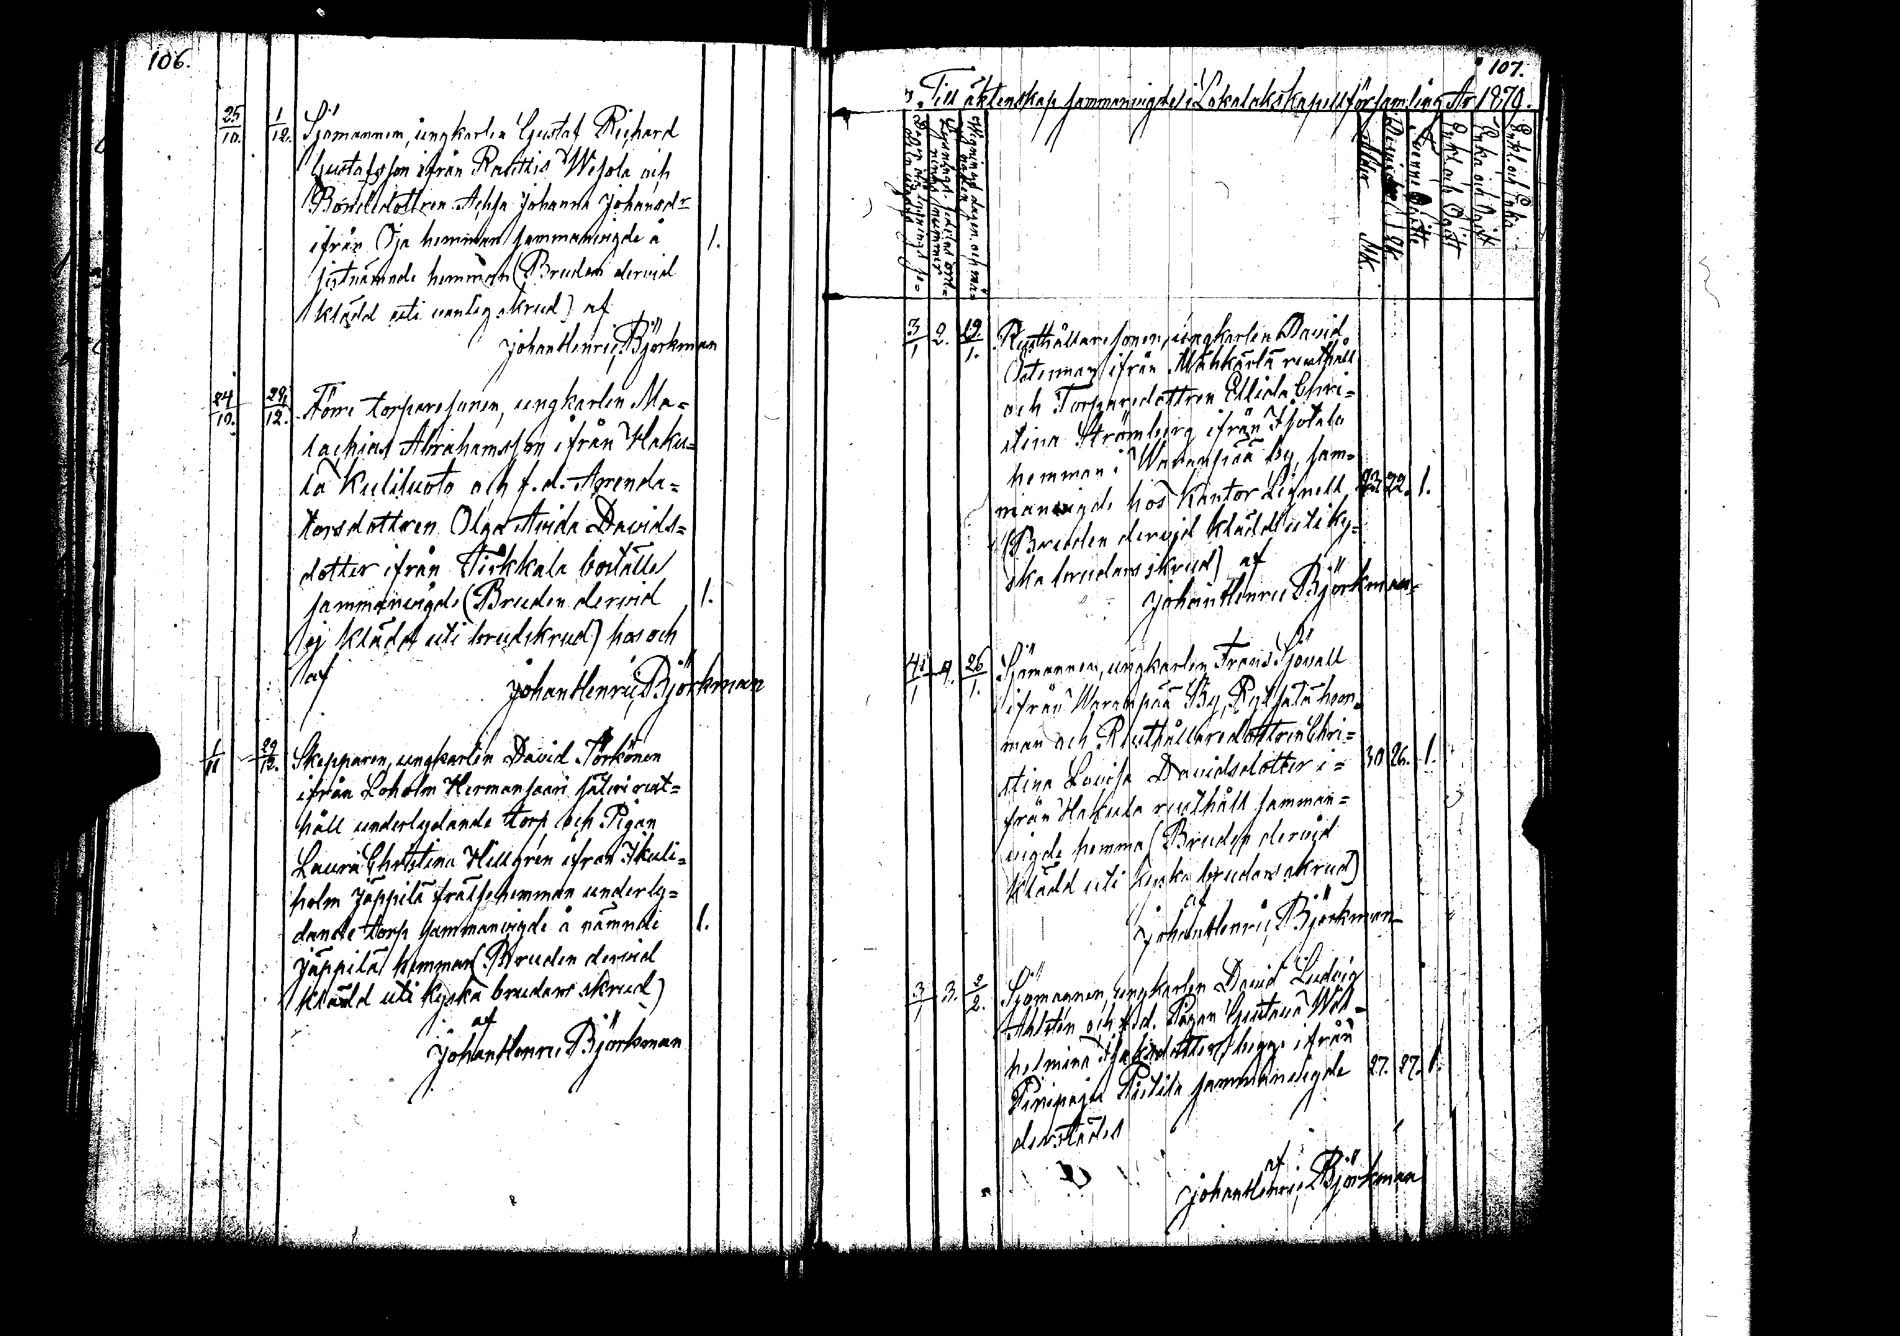 106.
25/10. 1/12. Sjömannen, ungkarlen Gustaf Richard
Gustafsson ifrån Wesola och
Bondedottren Johanna Johansdr
ifrån Öja hemman sammanvigde å
sistnämnde hemman (Bruden dervid
klädd uti vanlig skrud) af 1.
Johan Henric Björkman
24/10. 29/12. Förre torparesonen, ungkarlen Ma=
lachias Abrahamsson ifrån Haku=
la Kuliluoto och f.d. Arenda=
torsdottren Olga Avida Davids=
dotter ifrån Tiskkala boställe
sammanvigde (Bruden dervid 1.
ej klädd uti brudskrud) hos och
af
Johan Henric Björkman
1/11 29/12. Skepparen, ungkarlen David Törkönen
ifrån Loholm Hermansaari säteri rust=
håll underlydande torp och Pigan
Laura Christina Hellgren ifrån
holm Jäppilä frälsehemman underly=
dande torp sammanvigde å nämnde 1.
Jäppilä hemman (Bruden dervid
klädd uti kyska brudars skrud)
af
Johan Henric Björkman
107.
Till äktenskap sammanvigde i Lokalaks kapellförsamling År 1879.
Vigningsdagen och må=
naden
Ålder
Mk.
Qk.
Enkl. och Ogift
Enka och Ogift
Enkl. och Enka
3/1 2. 19/1. Rusthållaresonen, ungkarlen David
Österman ifrån rusthåll
och Torparedottren Elida Chri=
stina Strömberg ifrån Isotalo
hemman i Waranpää by, sam=
manvigde hos Kantor Lignell 23. 22. 1.
(Bruden dervid klädd uti ky=
ska brudars skrud) af
Johan Henric Björkman
4/1 4. 26/1. Sjömannen, ungkarlen Frans Sjövall
ifrån Waranpää By, hem=
man och Rusthållaredottren Chri=
stina Lovisa Davidsdotter i= 30 26. 1.
från Hakula rusthåll samman=
vigde hemma (Bruden dervid
klädd uti kyska brudars skrud)
af
Johan Henric Björkman
3/1 3. 2/2. Sjömannen, ungkarlen David Ludvig
Ahlstén och f.d. Pigan Gustava Wil=
helmina Isaksdotter, begge ifrån
Pinipaju sammanvigde 27. 27. 1.
derstädes
af
Johan Henric Björkman